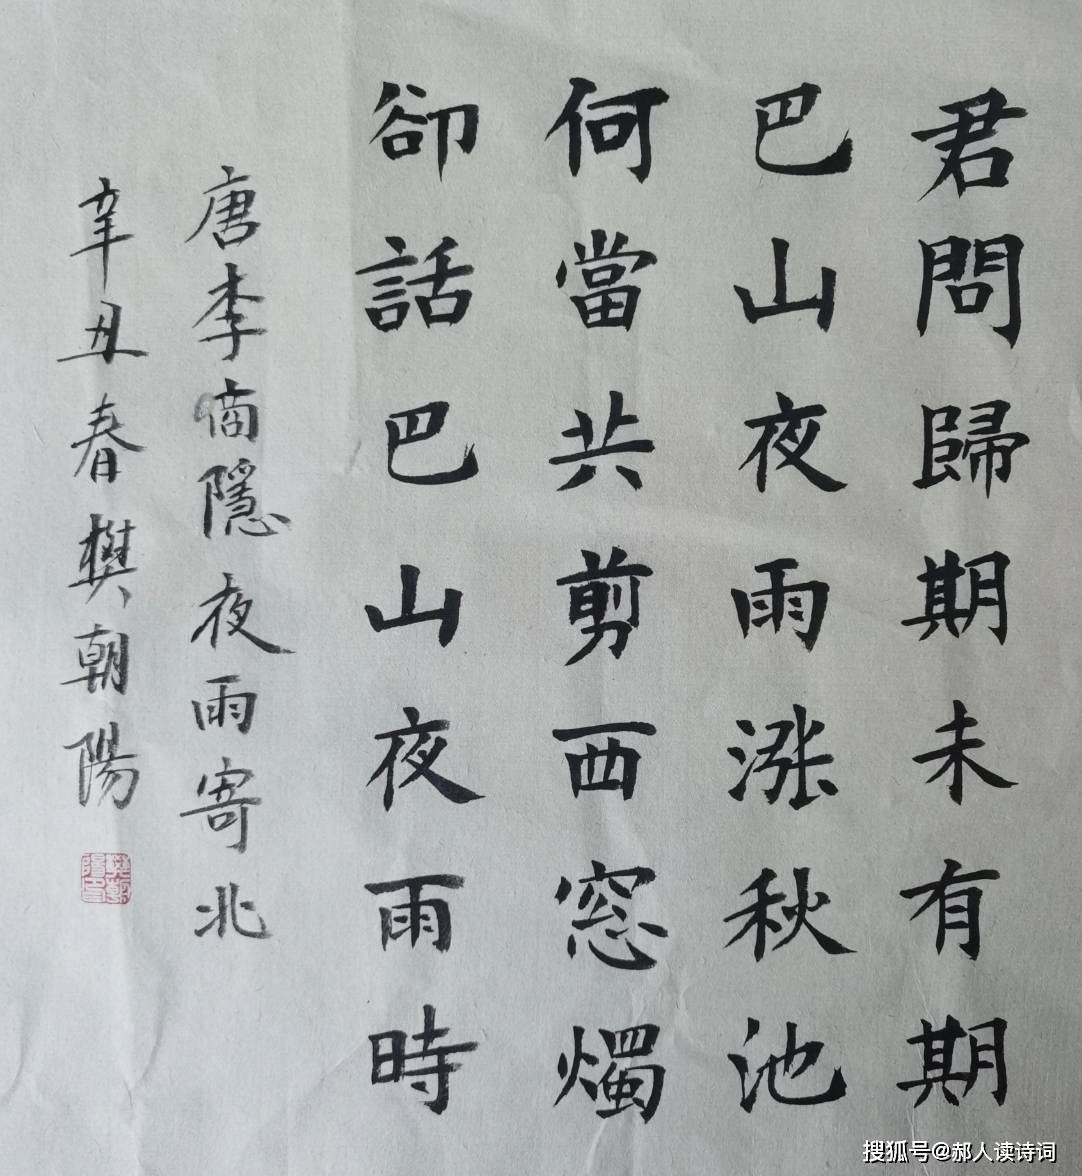 君問歸期未有期
巴山夜雨漲秋池
何當共剪西窓燭
卻話巴山夜雨時
唐李商隱夜雨寄北
辛丑春樊朝陽
搜狐号@郝人读诗词